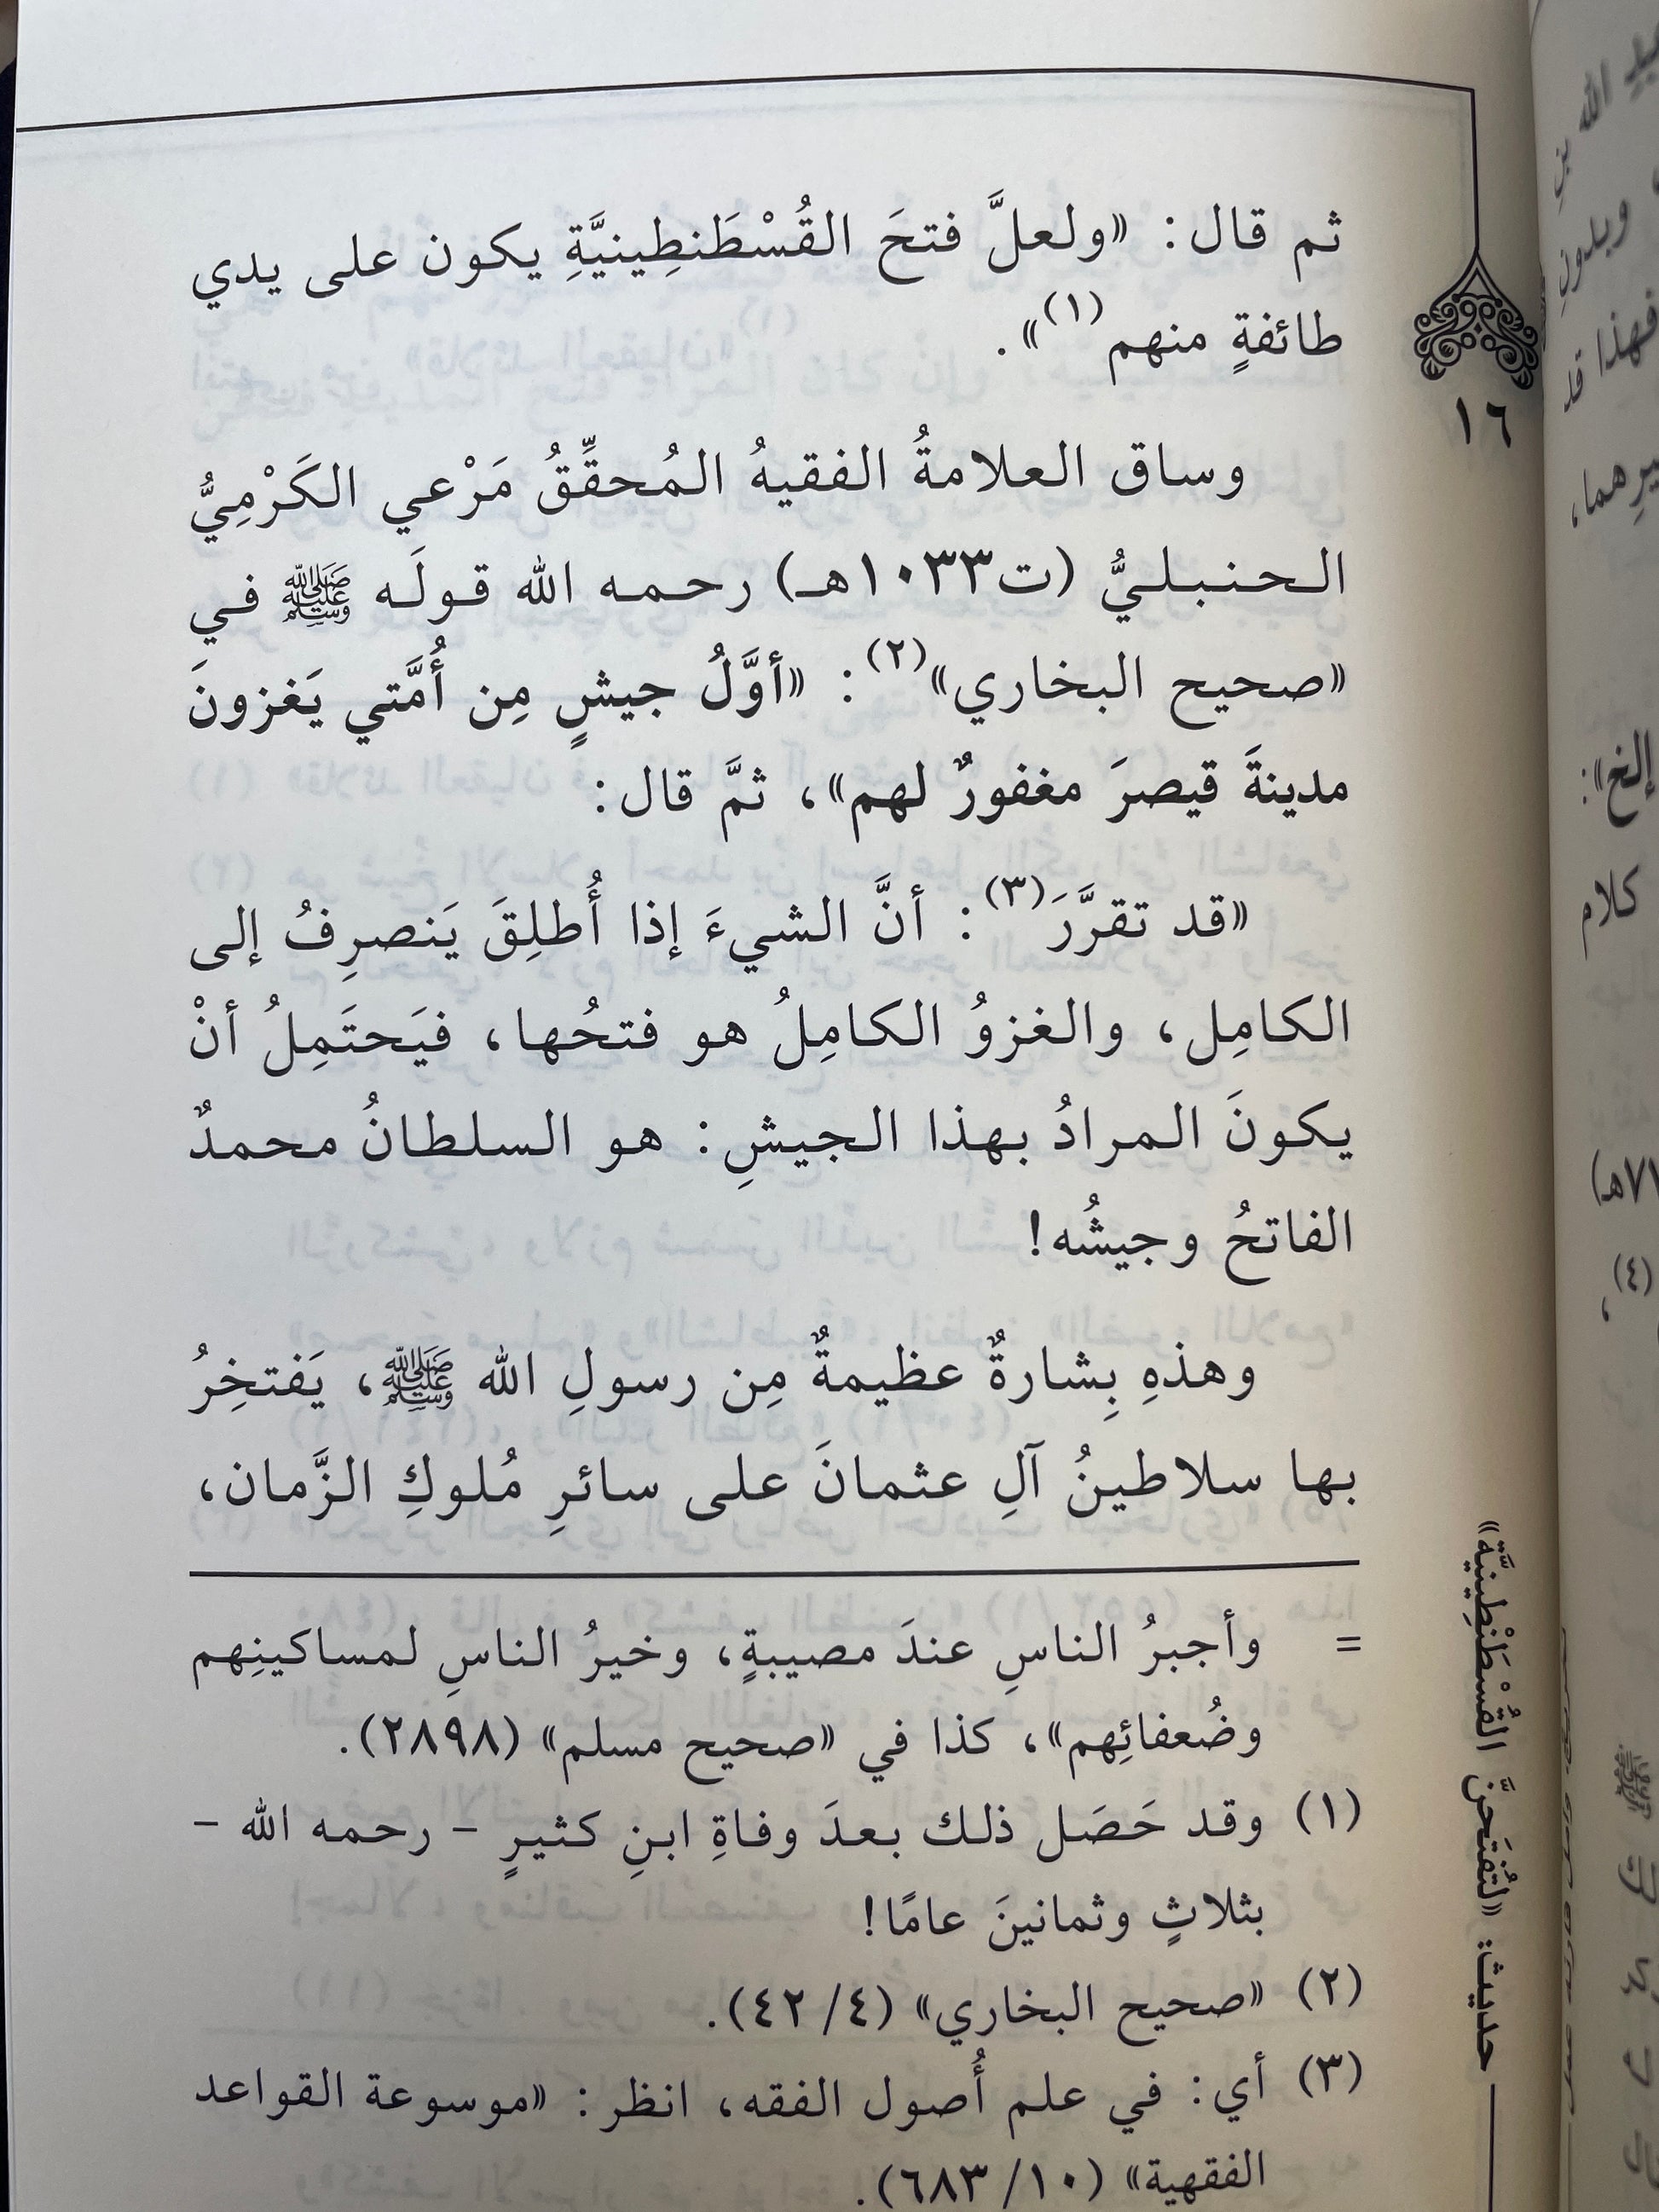 ثم قال: «ولعلَّ فتحَ القُسْطَنطِينيَّةِ يكون على يدي
طائفةٍ منهم(١)».
١٦
وساق العلامةُ الفقيهُ المُحقِّقُ مَرْعي الكَرْمِيُّ
الحنبليُّ (ت١٠٣٣هـ) رحمه الله قولَه ﷺ في
«صحيح البخاري»(٢): «أوَّلُ جيشٍ مِن أُمَّتي يَغزونَ
مدينةَ قيصرَ مغفورٌ لهم»، ثمَّ قال:
«قد تقرَّرَ(٣): أنَّ الشيءَ إذا أُطلِقَ يَنصرِفُ إلى
الكامِل، والغزوُ الكامِلُ هو فتحُها، فيَحتَمِلُ أنْ
يكونَ المرادُ بهذا الجيشِ: هو السلطانُ محمدٌ
الفاتحُ وجيشُه!
وهذهِ بِشارةٌ عظيمةٌ مِن رسولِ الله ﷺ، يَفتخِرُ
بها سلاطينُ آلِ عثمانَ على سائرِ مُلوكِ الزَّمان،
= وأجبرُ الناسِ عندَ مصيبةٍ، وخيرُ الناسِ لمساكينِهم
وضُعفائِهم»، كذا في «صحيح مسلم» (٢٨٩٨).
(١) وقد حَصَل ذلك بعدَ وفاةِ ابنِ كثيرٍ - رحمه الله -
بثلاثٍ وثمانينَ عامًا!
(٢) «صحيح البخاري» (٤/ ٤٢).
(٣) أي: في علم أُصول الفقه، انظر: «موسوعة القواعد
الفقهية» (١٠/ ٦٨٣).
حديث: «لتُفتَحنَّ القُسْطَنْطِينيَّة»
الله بن
وبدونِ
فهذا قد
إلخ»:
كلام
(٤)،